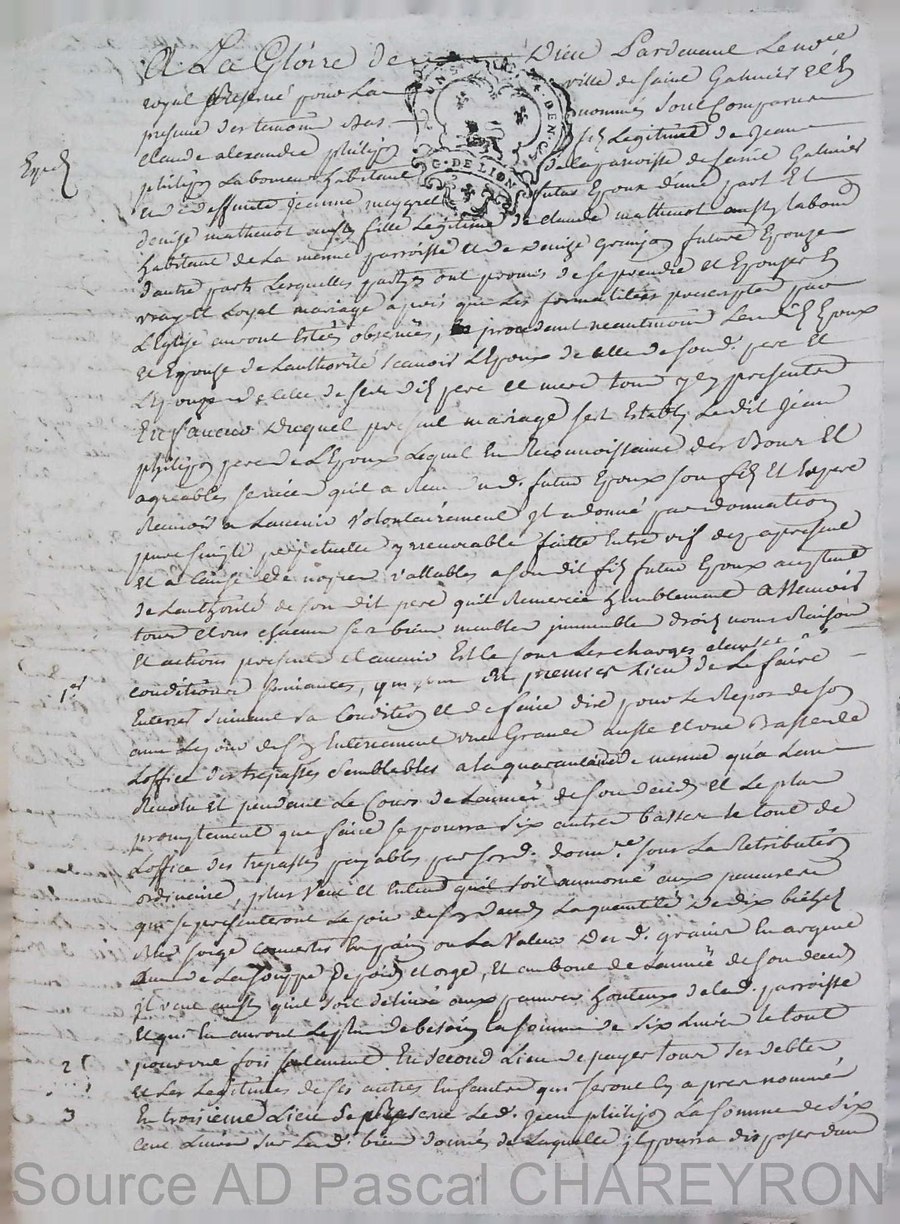 A La Gloire de Dieu Pardevant Le no.re
royal Reservé pour La ville de saint Galmier et En
presence des temoins bas nommes sont Comparus
claude alexandre philip fils Legitime de Jean
Exped
philip Laboureur habitant de la parroisse de saint Galmier
et de deffunte Jeanne futur Epoux d'une part Et
denise mathenot aussy fille Legitime de claude mathenot aussy labour
habitant de La meme parroisse et de denize future Epouze
d'autre part Lesquelles parties ont promis de se prendre et Epouzer En
vray et Loyal mariage apres que Les formalittés prescriptes par
L'Eglise auront Estées observées, procedant neantmoins Lesd. Epoux
et Epouze de L'authorité scavoir L'Epoux de celle de sond. pere et
L'Epouze de celle de sesd. pere et mere tous icy presents
En faveur Duquel present mariage s'est Estably Ledit Jean
philip pere de L'Epoux Lequel En Reconnoissance des Bons Et
agreables services qu'il a Recu dud. futur Epoux son fils Et Espere
Recevoir a L'avenir volontairement Il a donné par donnation
pure simple perpetuelle yrrevocable faitte Entre vifs dez apresent
et a cause de nopces vallables a son dit fils futur Epoux acceptant
de L'authorité de son dit pere qu'il Remercie humblement a scavoir
tous et uns chacuns ses biens meubles immeubles droits noms Raisons
Et actions presents et avenir Est Ce sous Les charges clauses
1er
conditions suivantes, qui sont En premier Lieu de Le faire
Enterrer suivant sa Condition et de faire dire pour Le Repos de son
ame Le jour de son Enterrement une Grande messe et une Basse de
L'office des trepassés semblables a la quarantaine de meme qu'a L'an
Revolu Et pendant Le Cours de L'année de son deceds et Le plus
promptement que faire se pourra six autres basses le tout de
L'office des trepassés payables par sond. donn.re sous La Retribution
ordinaire, plus veut et Entend qu'il soit aumoné aux pauvres
qui se presenteront Le jour de son deceds La quantité de dix bichets
bled soige convertis En pain ou La valeur desd. grains En argent
de La souppe de pois et orge, et au bout de L'année de son deceds
Il veut aussy qu'il soit delivré aux pauvres honteux de lad. parroisse
et qui En auront Le plus de besoin la somme de six Livres le tout
2
pour une fois seulement En second Lieu de payer tous ses debtes
et Les Legitimes de ses autres Enfants qui seront cy apres nommés
3
En troisieme Lieu se Reserve Led. Jean philip La somme de six
cent Livres sur Led. bien donnés de Laquelle il pourra disposer dans
G. DE LION
Source AD Pascal CHAREYRON